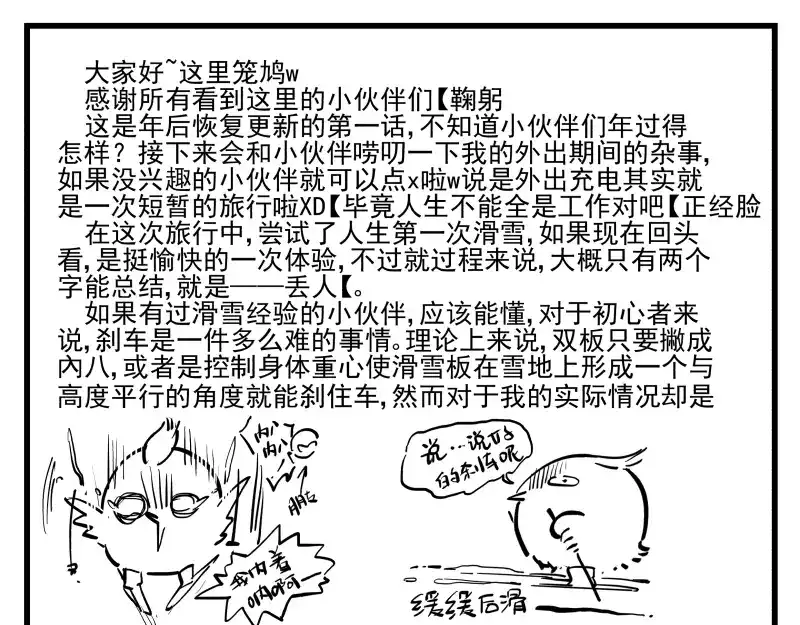 大家好~这里笼鸠w
感谢所有看到这里的小伙伴们【鞠躬
这是年后恢复更新的第一话,不知道小伙伴们年过得
怎样？接下来会和小伙伴唠叨一下我的外出期间的杂事,
如果没兴趣的小伙伴就可以点x啦w说是外出充电其实就
是一次短暂的旅行啦XD【毕竟人生不能全是工作对吧【正经脸
在这次旅行中,尝试了人生第一次滑雪,如果现在回头
看,是挺愉快的一次体验,不过就过程来说,大概只有两个
字能总结,就是——丢人【。
如果有过滑雪经验的小伙伴,应该能懂,对于初心者来
说,刹车是一件多么难的事情。理论上来说,双板只要撇成
內八,或者是控制身体重心使滑雪板在雪地上形成一个与
高度平行的角度就能刹住车,然而对于我的实际情况却是
内八
内八
我内着
呐啊
说…说好
的刹车呢
缓缓后滑